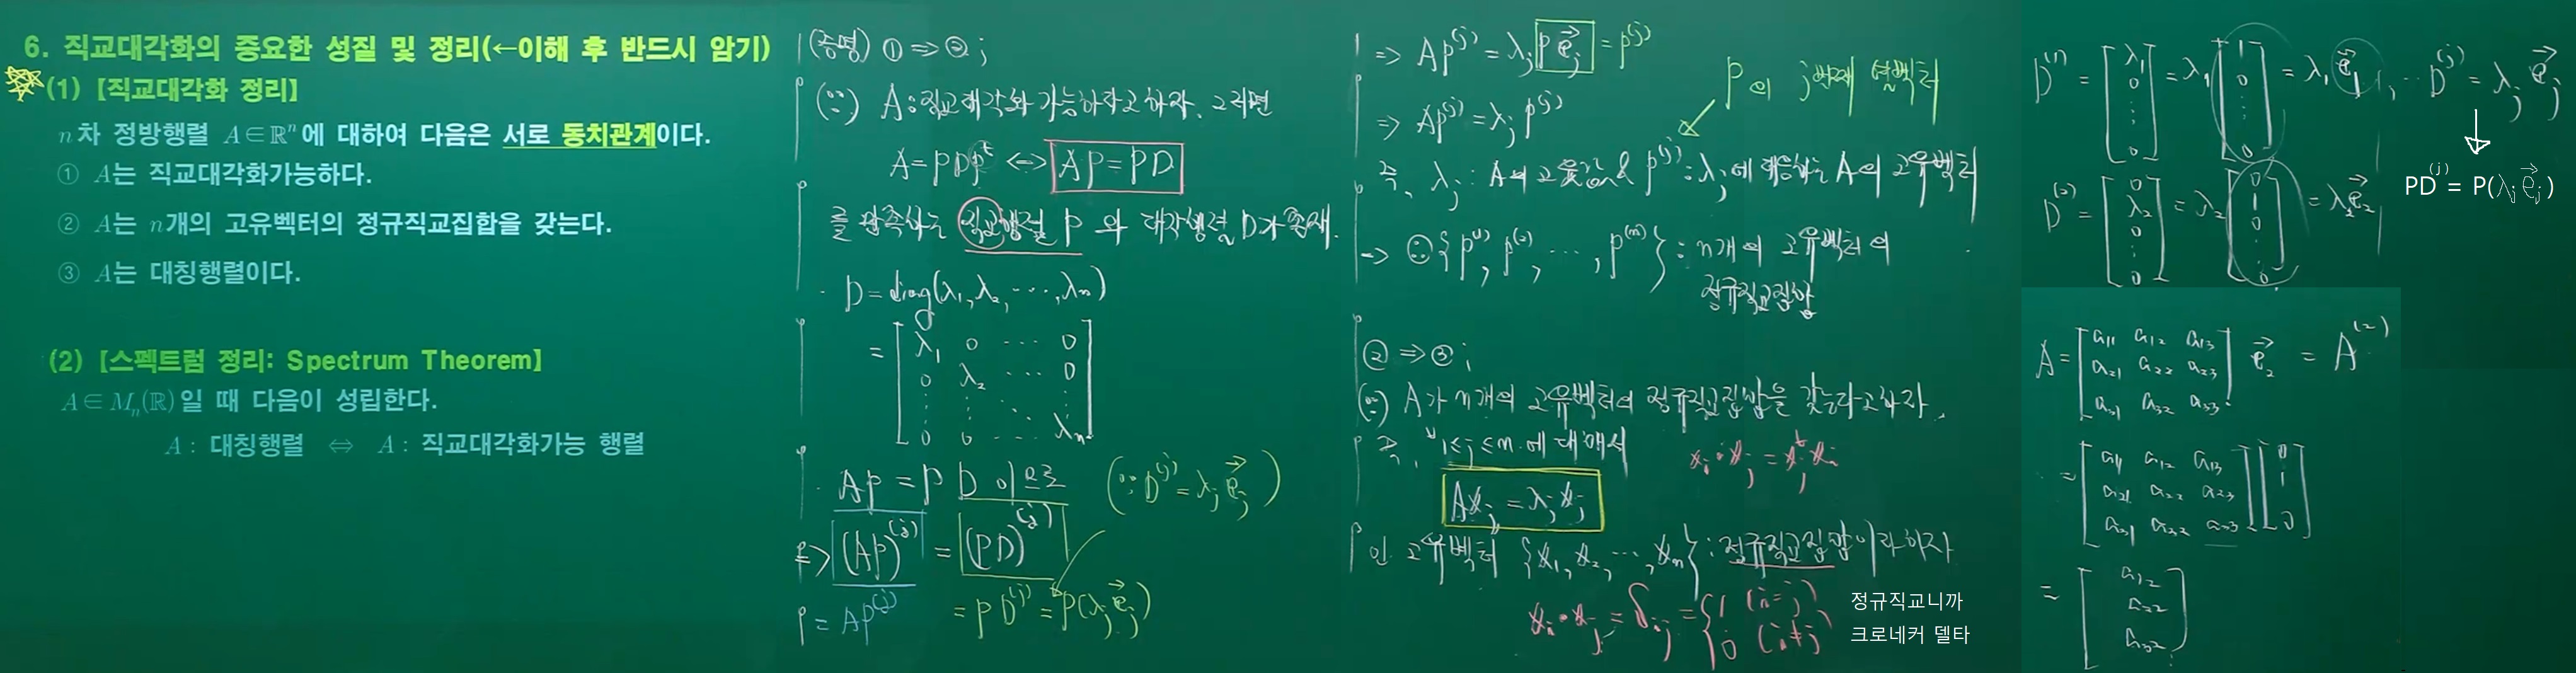 6. 직교대각화의 중요한 성질 및 정리(←이해 후 반드시 암기)
(1) [직교대각화 정리]
n차 정방행렬 A∈ℝⁿ에 대하여 다음은 서로 동치관계이다.
① A는 직교대각화가능하다.
② A는 n개의 고유벡터의 정규직교집합을 갖는다.
③ A는 대칭행렬이다.
(2) [스펙트럼 정리: Spectrum Theorem]
A∈Mₙ(ℝ)일 때 다음이 성립한다.
A : 대칭행렬 ⇔ A : 직교대각화가능 행렬
(증명) ① ⇒ ② ;
(∵) A : 직교대각화 가능하다고 하자. 그러면
A = PDPᵗ ⇔ AP = PD
를 만족하는 직교행렬 P 와 대각행렬 D가 존재.
· D = diag(λ₁, λ₂, ···, λₙ)
= [λ₁ 0 ··· 0
0 λ₂ ··· 0
⋮ ⋮ ⋱ ⋮
0 0 ··· λₙ]
· AP = PD 이므로 (∵ D⁽ʲ⁾ = λⱼe⃗ⱼ)
⇒ (AP)⁽ʲ⁾ = (PD)⁽ʲ⁾
= AP⁽ʲ⁾ = PD⁽ʲ⁾ = P(λⱼe⃗ⱼ)
⇒ AP⁽ʲ⁾ = λⱼ Pe⃗ⱼ = P⁽ʲ⁾
P의 j번째 열벡터
⇒ AP⁽ʲ⁾ = λⱼP⁽ʲ⁾
즉, λⱼ : A의 고유값 & P⁽ʲ⁾ : λⱼ에 대응하는 A의 고유벡터
⇒ ∴ {P⁽¹⁾, P⁽²⁾, ···, P⁽ⁿ⁾} : n개의 고유벡터의
정규직교집합
② ⇒ ③ ;
(∵) A가 n개의 고유벡터의 정규직교집합을 갖는다고 하자.
즉, ∀1≤j≤n 에 대해서
xᵢ·xⱼ = xⱼᵗxᵢ
Axⱼ = λⱼxⱼ
인 고유벡터 {x₁, x₂, ···, xₙ} : 정규직교집합이라 하자
xᵢ·xⱼ = δᵢⱼ = {1 (i=j)
0 (i≠j)
정규직교니까
크로네커 델타
D⁽¹⁾ = [λ₁ 0 ⋮ 0] = λ₁[1 0 ⋮ 0] = λ₁e⃗₁, ··· D⁽ʲ⁾ = λⱼe⃗ⱼ
PD⁽ʲ⁾ = P(λⱼe⃗ⱼ)
D⁽²⁾ = [0 λ₂ 0 ⋮ 0] = λ₂[0 1 0 ⋮ 0] = λ₂e⃗₂
A = [a₁₁ a₁₂ a₁₃
a₂₁ a₂₂ a₂₃
a₃₁ a₃₂ a₃₃] e⃗₂ = A⁽²⁾
= [a₁₁ a₁₂ a₁₃
a₂₁ a₂₂ a₂₃
a₃₁ a₃₂ a₃₃][0 1 0]
= [a₁₂
a₂₂
a₃₂]